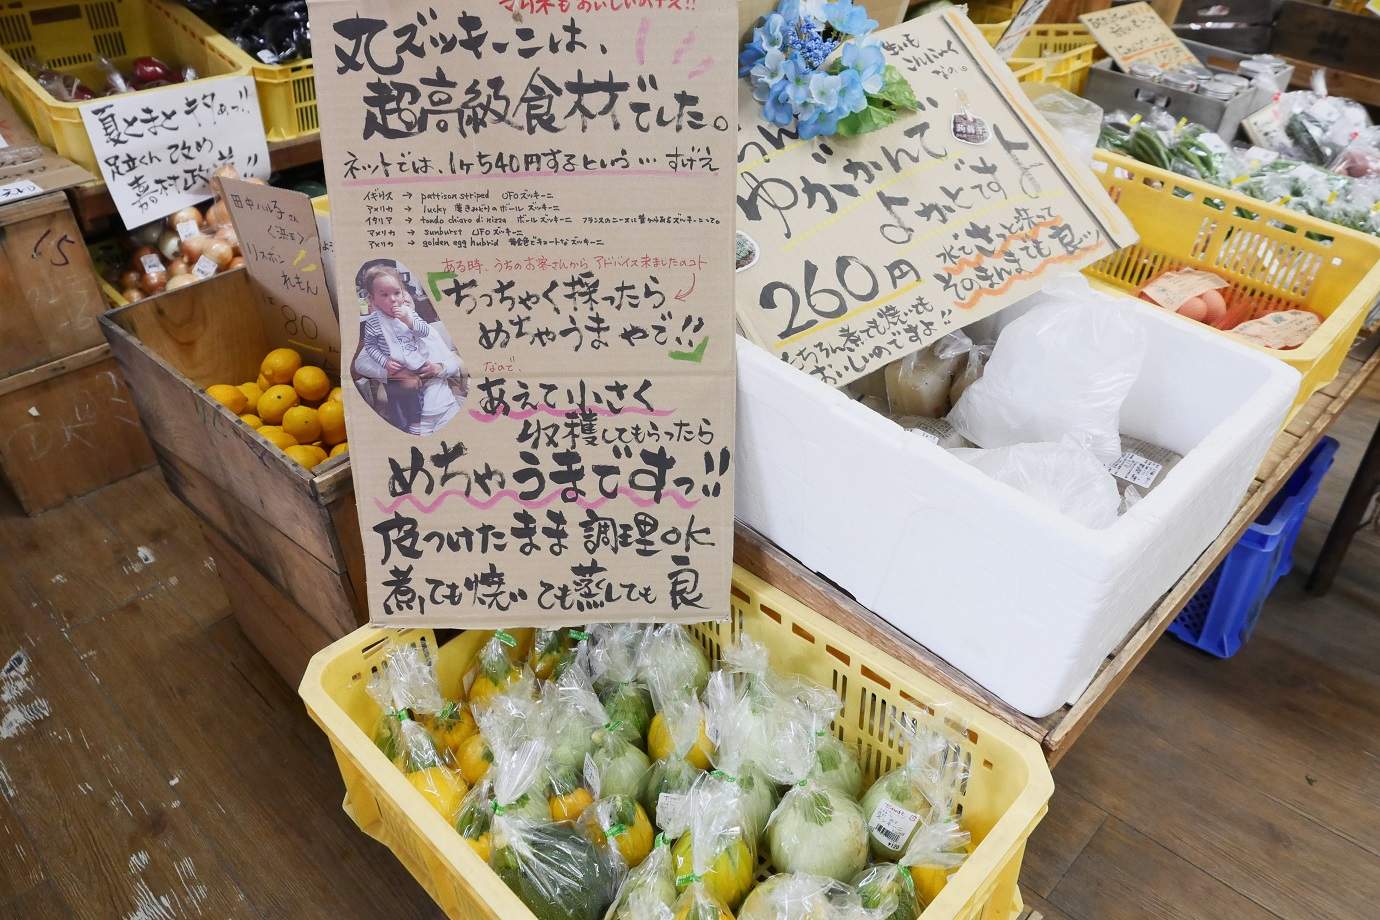 マリネもおいしいのすぇ!!
丸ズッキーニは、
超高級食材でした。
ネットでは、1ヶ540円するという… すげえ
イギリス → pattison striped UFOズッキーニ
アメリカ → lucky 薄きみどりのボールズッキーニ
イタリア → tondo chiaro di nizza ボールズッキーニ フランスのニースに昔からあるズッキーニって。
アメリカ → sunburst UFOズッキーニ
アメリカ → golden egg hybrid 黄色でキュートなズッキーニ
ある時、うちのお客さんからアドバイス来ましたのコト
「ちっちゃく採ったら
めちゃうまやで!!」
なので、
あえて小さく
収穫してもらったら
めちゃうまですっ!!
皮つけたまま調理OK
煮ても焼いても蒸しても良
夏とまとキタぁっ!!
足立くん改め
喜村政
田中ハル子さん
リスボン
れもん
80
生いも
こんにゃく
なの。
ゆがかんで
よかとですよ
260円
水でさっと洗って
そのまんまでも良ッ
もちろん煮ても焼いても
おいしいのですよ!!